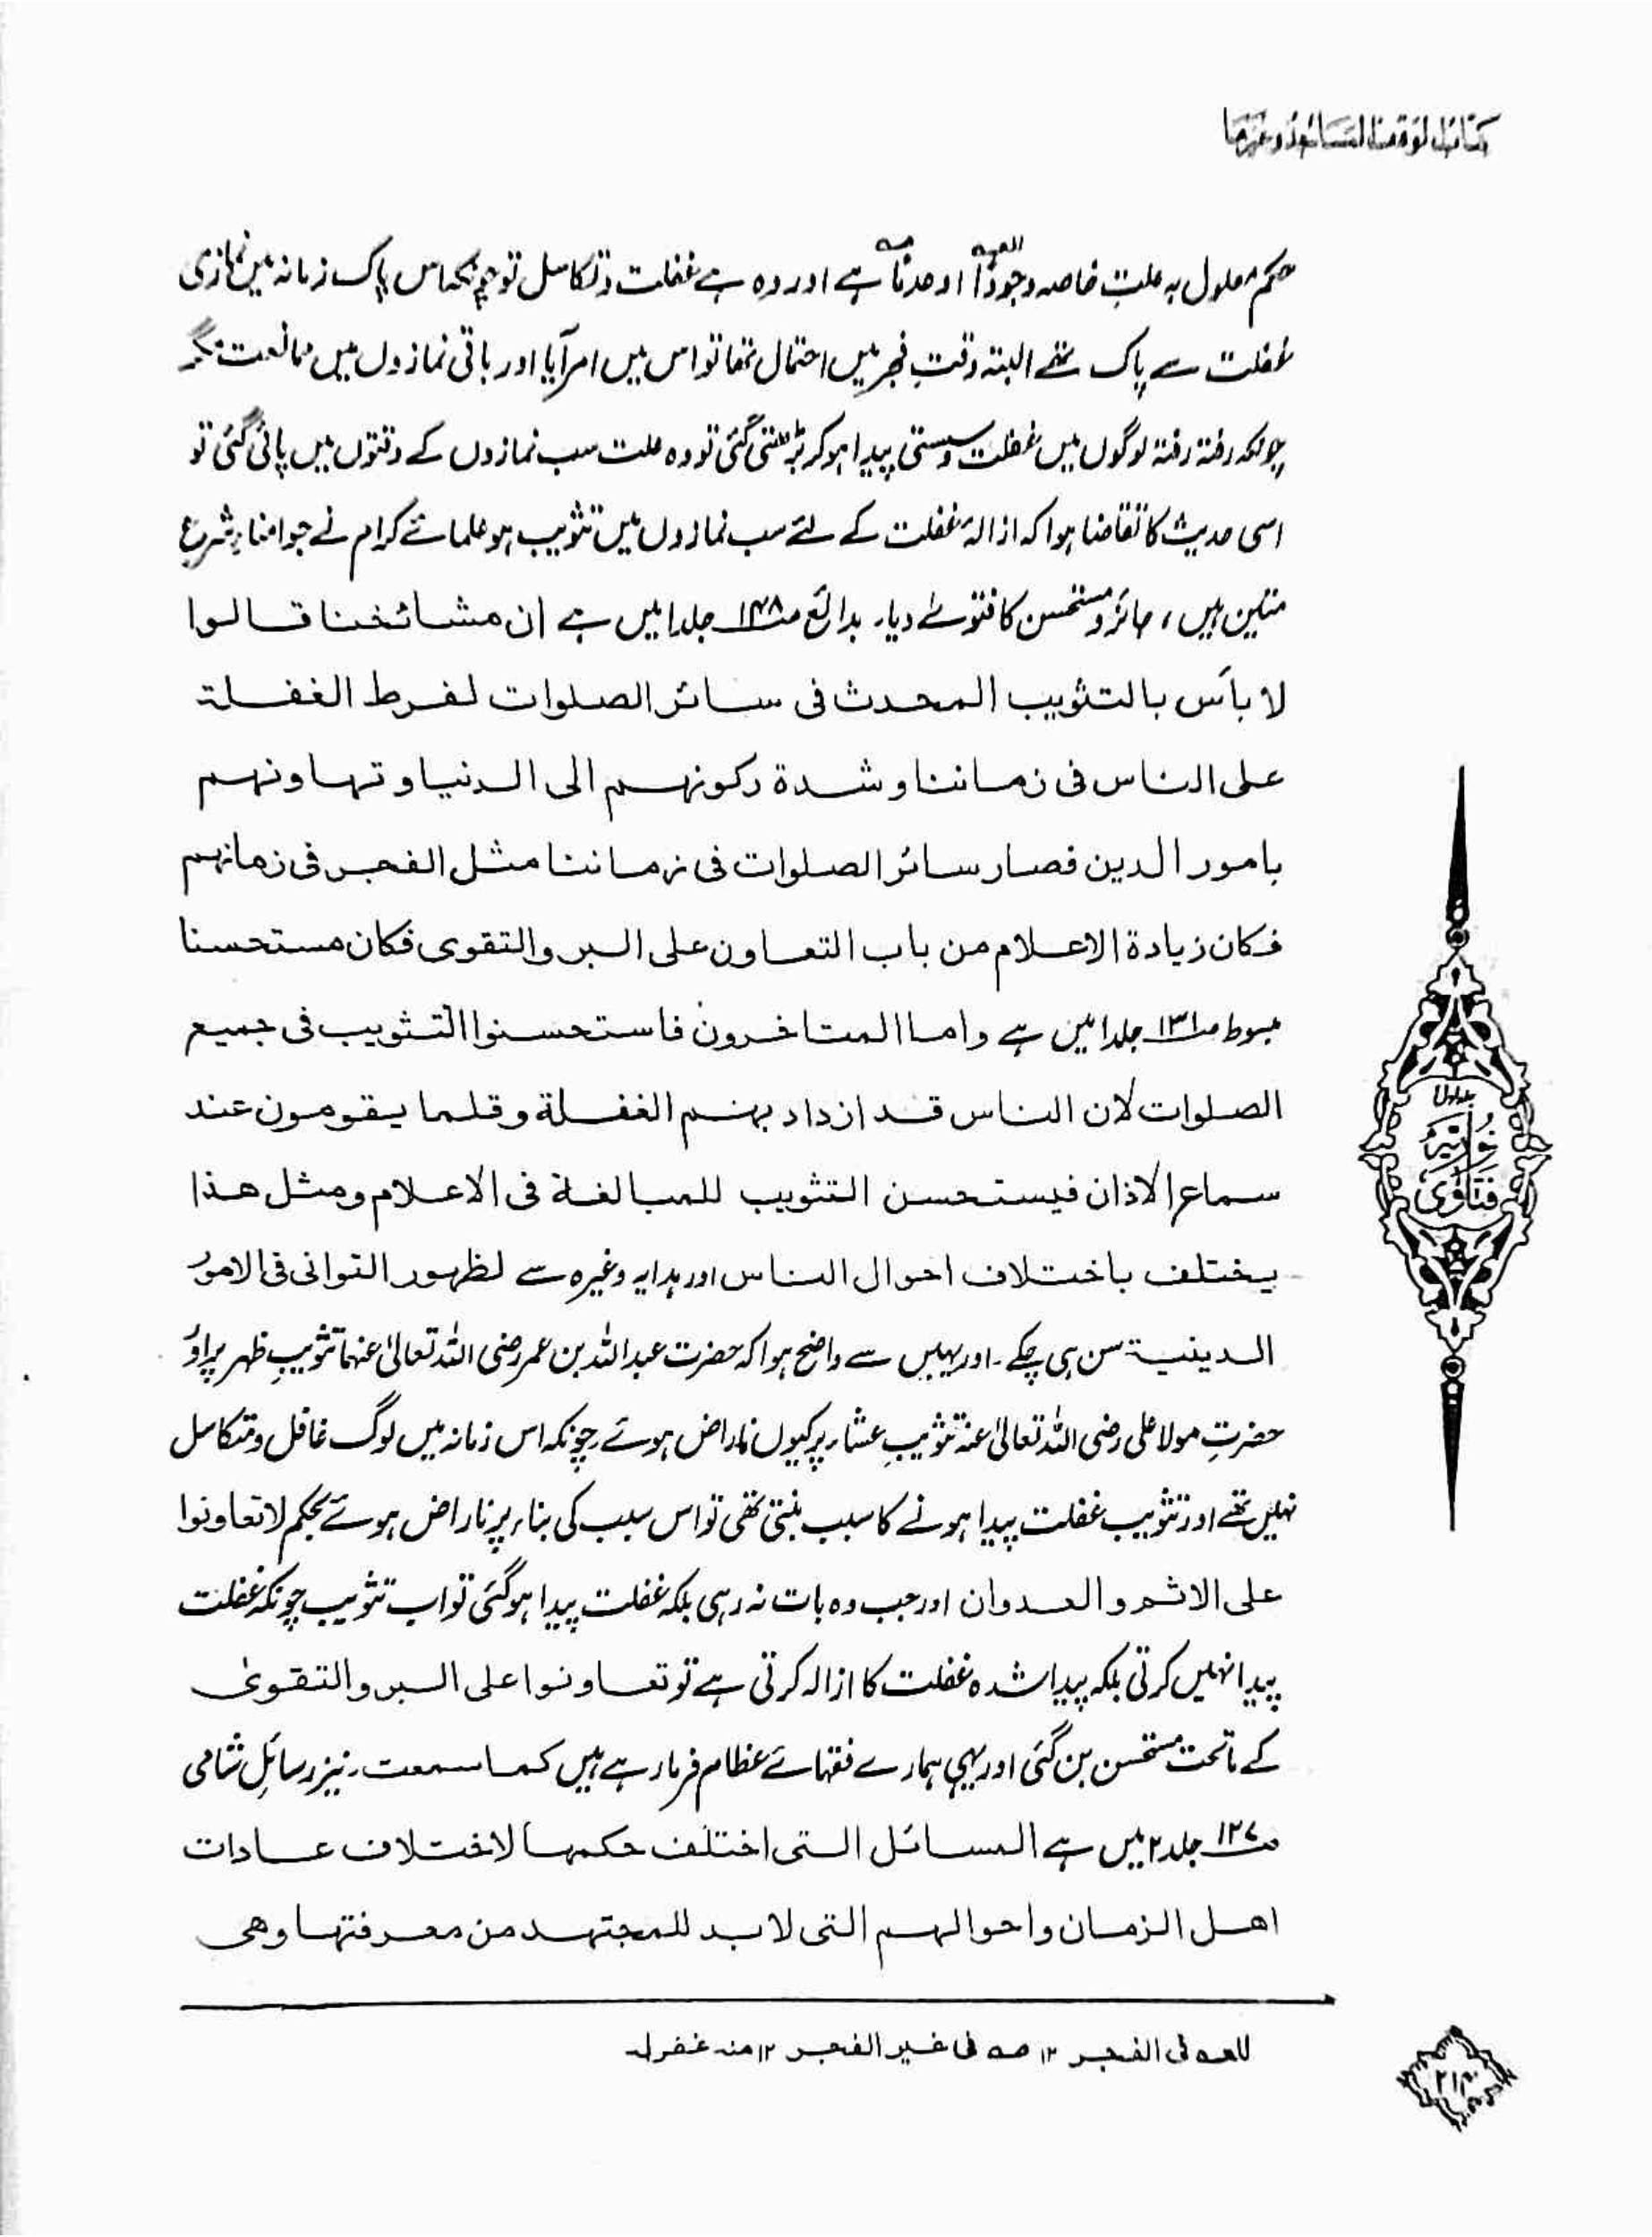 حکم معلول بہ علتِ خاصہ وجوداً او عدماً ہے اور وہ ہے غفلت و تکاسل تو چونکہ اس پاک زمانہ میں نمازی
غفلت سے پاک تھے البتہ وقتِ فجر میں احتمال تھا تو اس میں امر آیا اور باقی نمازوں میں ممانعت مگر
چونکہ رفتہ رفتہ لوگوں میں غفلت و سستی پیدا ہو کر بڑھتی گئی تو وہ علت سب نمازوں کے وقتوں میں پائی گئی تو
اسی حدیث کا تقاضا ہوا کہ ازالۂ غفلت کے لئے سب نمازوں میں تثویب ہو علمائے کرام نے جو امناءِ شرع
متین ہیں، جائز و مستحسن کا فتوےٰ دیا۔ بدائع ص۱۴۸ جلد۱ میں ہے ان مشائخنا قالوا
لا بأس بالتثویب المحدث فی سائر الصلوات لفرط الغفلة
علی الناس فی زماننا و شدة رکونہم الی الدنیا و تہاونہم
بامور الدین فصار سائر الصلوات فی زماننا مثل الفجر فی زمانہم
فکان زیادة الاعلام من باب التعاون علی البر والتقوی فکان مستحسنا
مبسوط ص۱۳۱ جلد۱ میں ہے واما المتاخرون فاستحسنوا التثویب فی جمیع
الصلوات لان الناس قد ازداد بہم الغفلة و قلما یقومون عند
سماع الاذان فیستحسن التثویب للمبالغة فی الاعلام ومثل ھذا
یختلف باختلاف احوال الناس اور ہدایہ وغیرہ سے لظہور التوانی فی الامور
الدینیة سن ہی چکے۔ اور یہیں سے واضح ہوا کہ حضرت عبداللہ بن عمر رضی اللہ تعالیٰ عنہما تثویبِ ظہر پر اور
حضرتِ مولا علی رضی اللہ تعالیٰ عنہ تثویبِ عشاء پر کیوں ناراض ہوئے۔ چونکہ اس زمانہ میں لوگ غافل و متکاسل
نہیں تھے اور تثویب غفلت پیدا ہونے کا سبب بنتی تھی تو اس سبب کی بناء پر ناراض ہوئے بحکم لا تعاونوا
علی الاثم والعدوان اور جب وہ بات نہ رہی بلکہ غفلت پیدا ہوگئی تو اب تثویب چونکہ غفلت
پیدا نہیں کرتی بلکہ پیدا شدہ غفلت کا ازالہ کرتی ہے تو تعاونوا علی البر والتقویٰ
کے ماتحت مستحسن بن گئی اور یہی ہمارے فقہائے عظام فرما رہے ہیں کما سمعت۔ نیز رسائلِ شامی
ص۱۲۷ جلد۲ میں ہے المسائل التی اختلف حکمہا لاختلاف عادات
اھل الزمان واحوالہم التی لا بد للمجتہد من معرفتہا وھی
للعہ فی الفجر ۱۲ صہ فی غیر الفجر ۱۲ منہ غفرلہ
جلد اول
نوریہ
فتاویٰ
۲۱۴